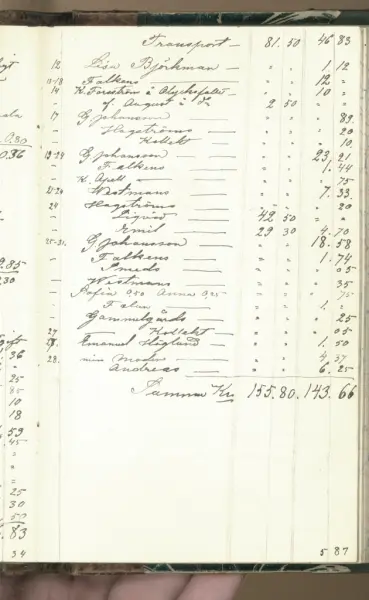 Transport — 81. 50 46 83
12 Lisa Björkman — " " 1. 12
13-18 Falkens — " " 12 "
14 K. Forsström à — " " 10 "
— J. August i — 2 50 "
17 G Johansson — " " " 89.
— Hagströms — " " " 20
— Kollekt — " " " 10.
19-24 G Johansson — " " 23. 21
— Falkens — " " 1. 44
— K. Apell — " " " 75
21-24 Westmans — " " 7. 33.
24 Hagströms — " " " 20
— Sigrid — 42 50 " "
— Emil — 29 30 4. 70
25-31. G Johansson — " " 18. 58
— Falkens — " " 1. 74
— Smeds — " " " 05
— Westmans — " " " 35
— Sofia 0,50 Anna 0,25 " " " 75
— Falun — " " 1. "
— Gammelgårds — " " " 25
27 Kollekt — " " " 05
27. Emanuel Höglund — " " 1. 50
28. min Moder — " " 4. 37
— Andreas — " " 6. 25
Summa Kr 155. 80. 143. 66
5 87
0.36
9.85
30
36
25
85
10
18
59
45
25
30
50
83
34